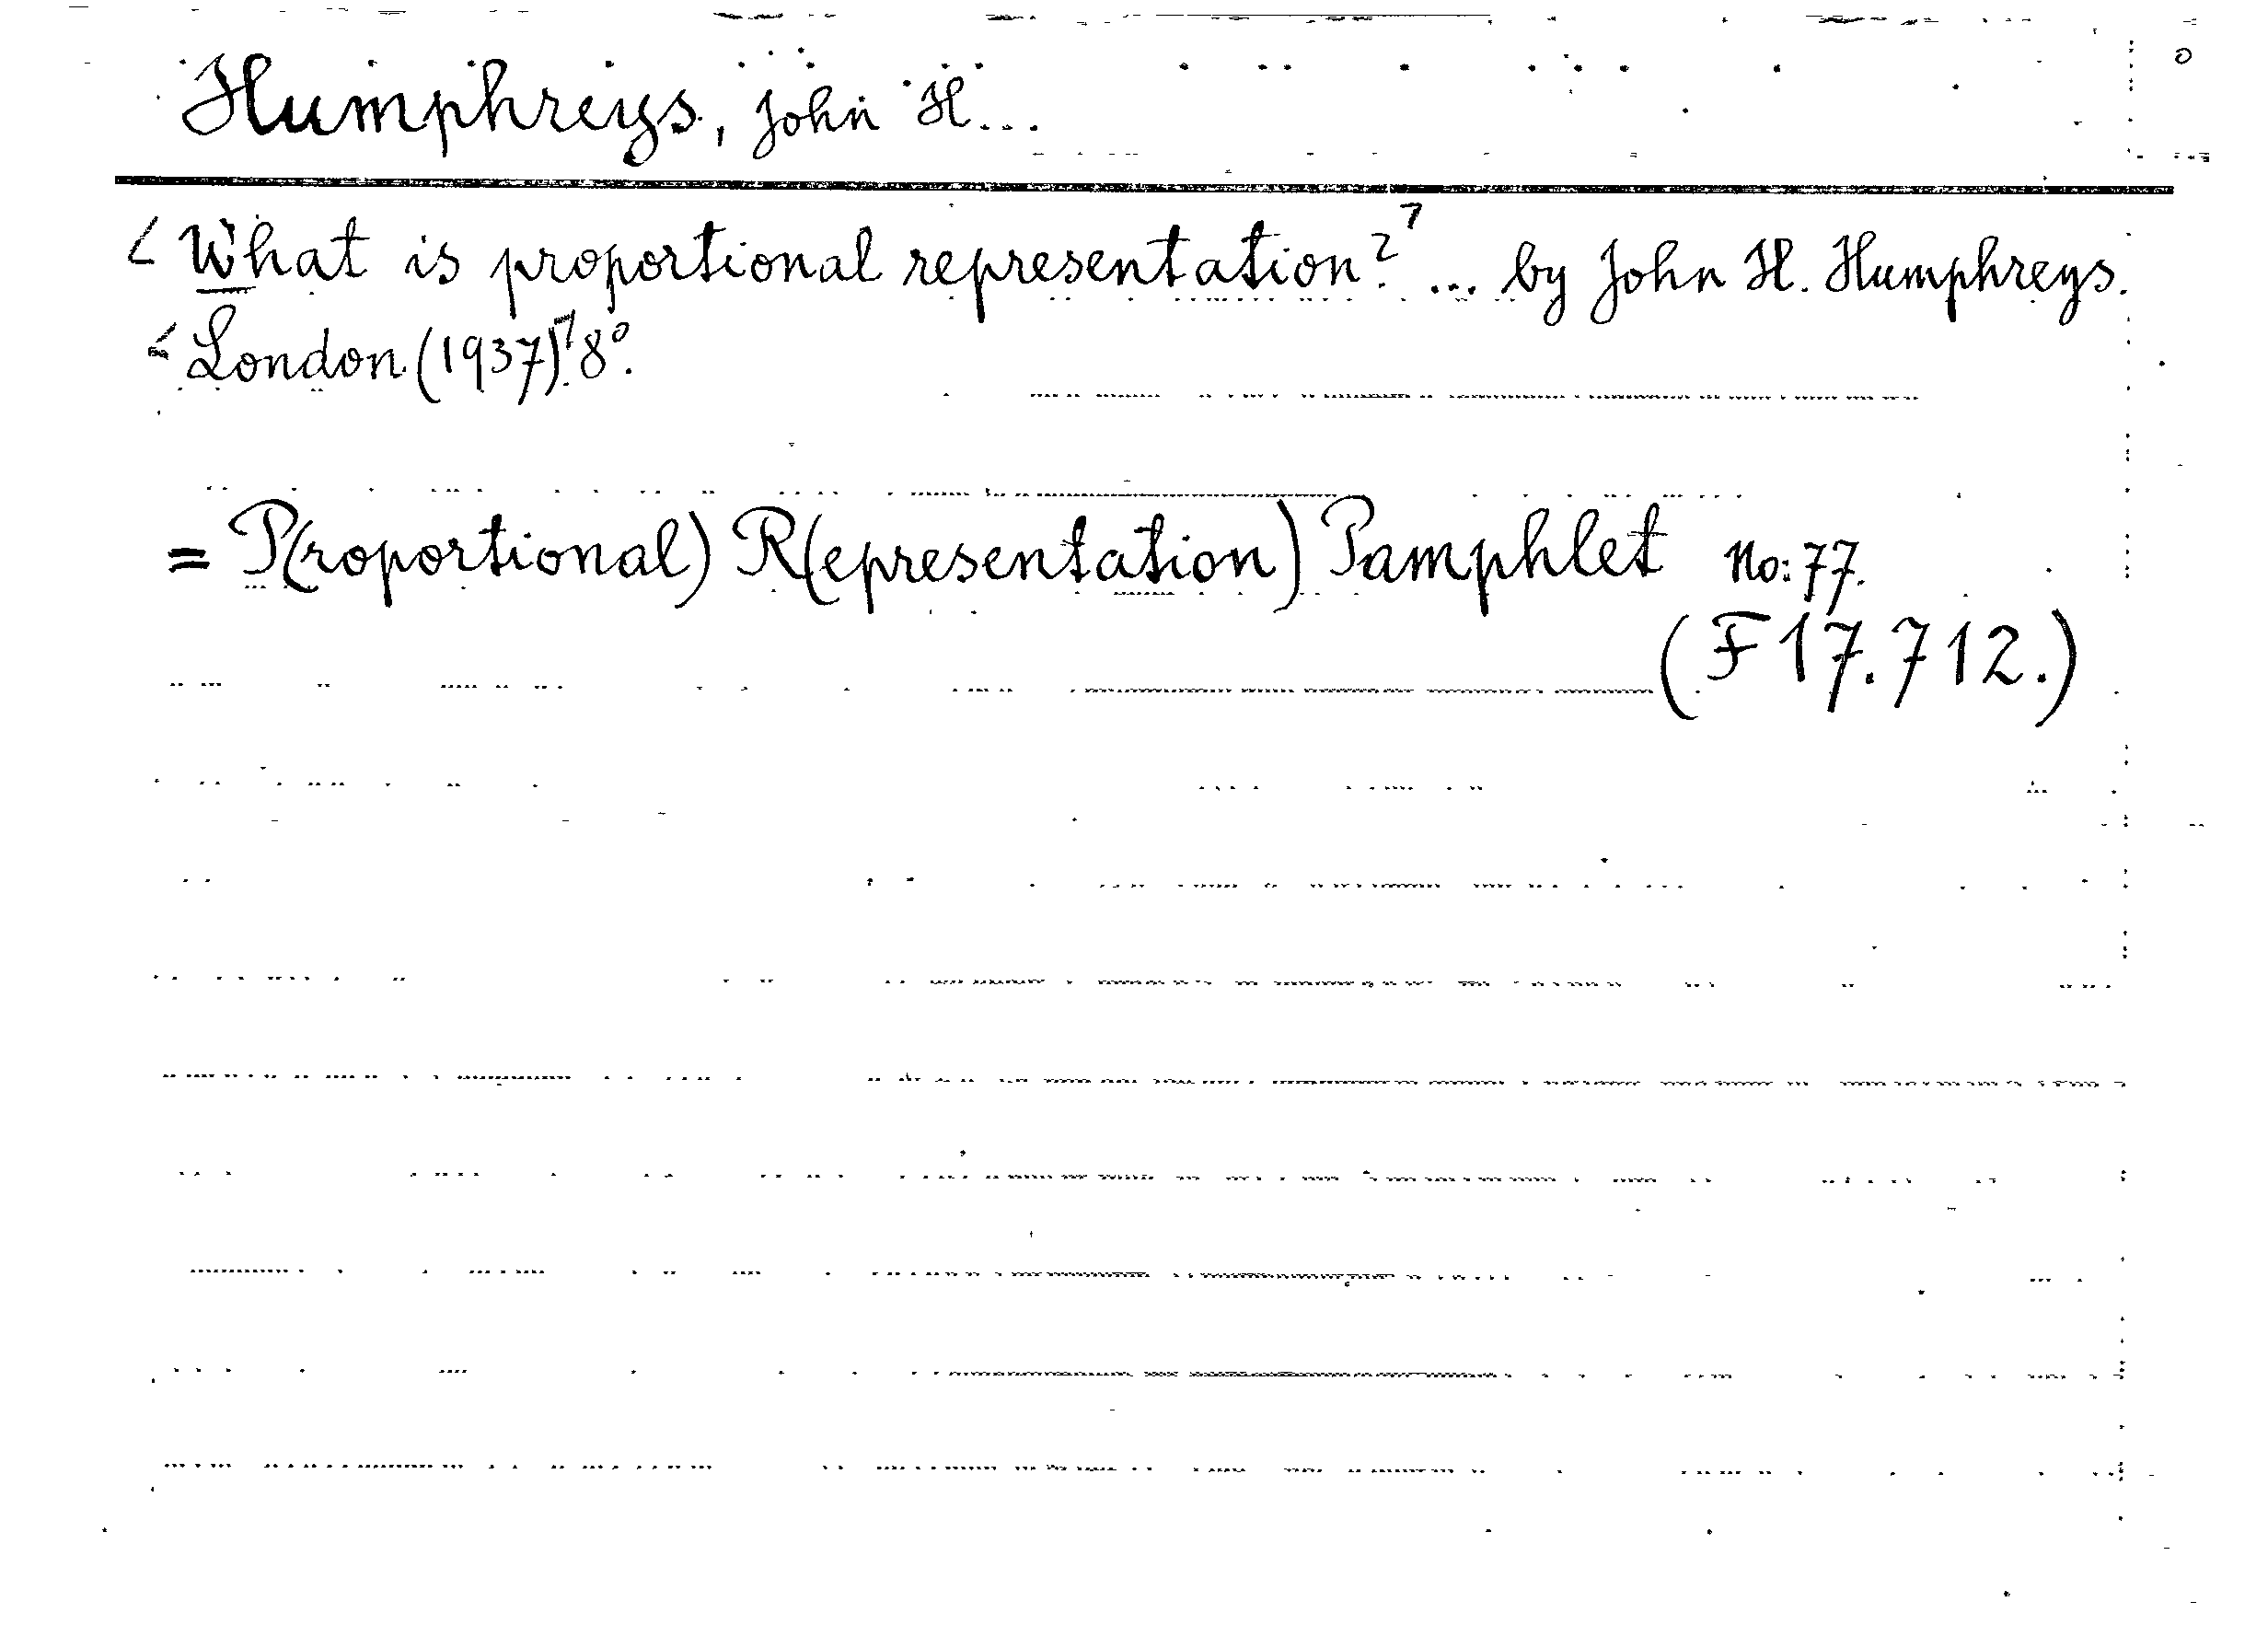 Humphreys, John H...
<What is proportional representation?> ... by John H. Humphreys.
<London (1937)> 8°.
= P(roportional) R(epresentation) Pamphlet No: 77.
(F 17.712.)